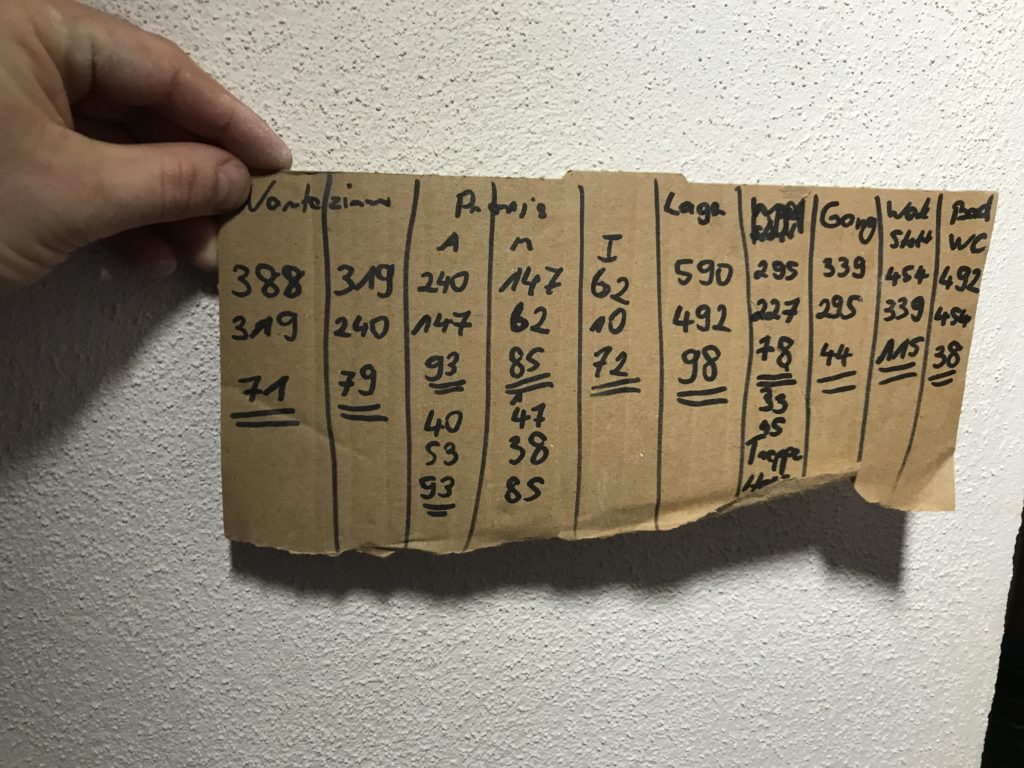 Lager Gang Werk Bad
Statt WC
A n I
388 319 240 147 62 590 295 339 454 492
319 240 147 62 10 492 227 295 339 454
71 79 93 85 72 98 78 44 115 38
40 47
53 38 Treppe
93 85